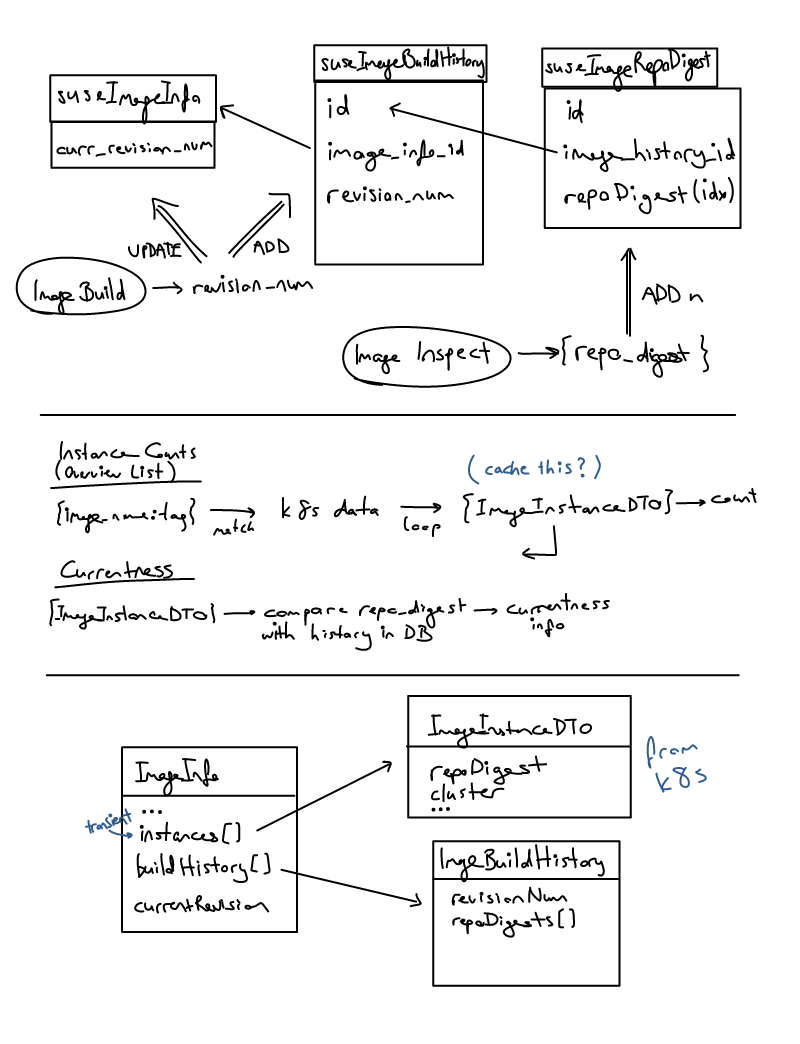 suseImageInfo
curr_revision_num
suseImageBuildHistory
id
image_info_id
revision_num
suseImageRepoDigest
id
image_history_id
repoDigest (idx)
UPDATE
ADD
Image Build
revision_num
ADD n
Image Inspect
{repo_digest}
Instance Counts
(Overview List)
(cache this?)
{image_name:tag}
match
k8s data
loop
{ImageInstanceDTO}
count
Currentness
{ImageInstanceDTO}
compare repo_digest
with history in DB
currentness
info
ImageInfo
...
transient
instances[]
buildHistory[]
currentRevision
ImageInstanceDTO
repoDigest
cluster
...
from
k8s
ImageBuildHistory
revisionNum
repoDigests[]